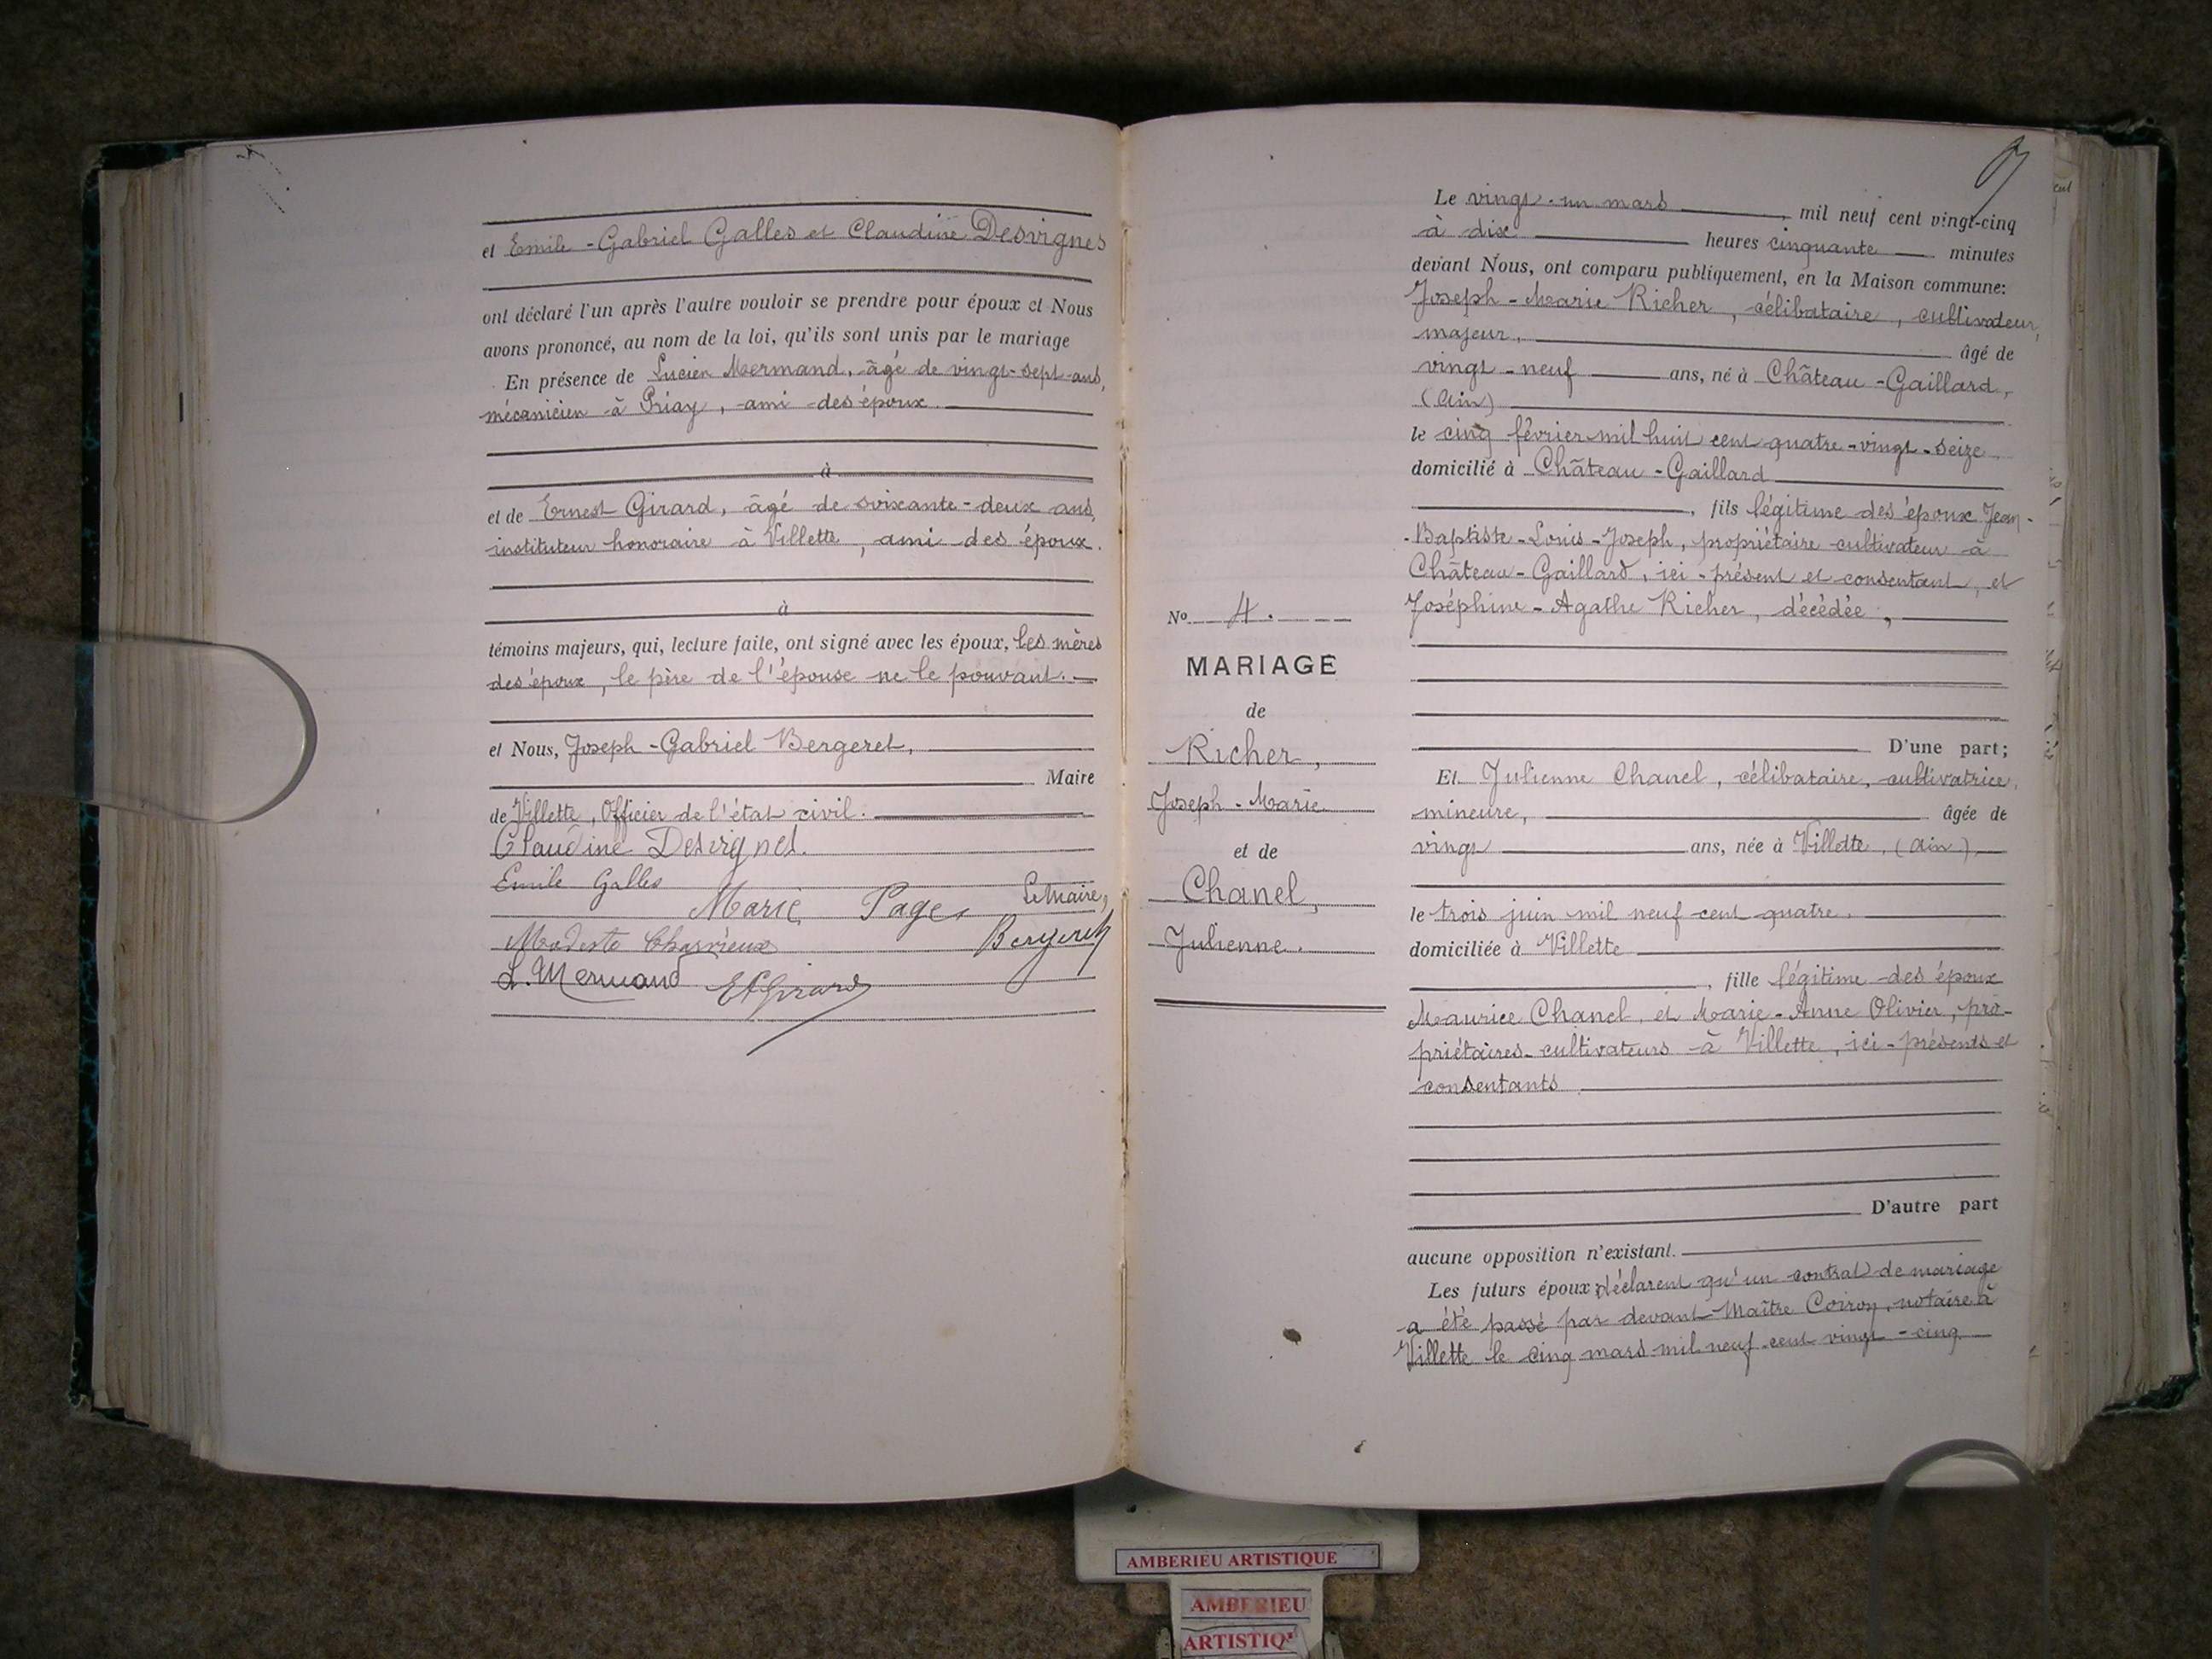 et Emile-Gabriel Galles et Claudine Desvignes
ont déclaré l'un après l'autre vouloir se prendre pour époux et Nous
avons prononcé, au nom de la loi, qu'ils sont unis par le mariage
En présence de Lucien Mermand, âgé de vingt-sept ans,
mécanicien à Priay, ami des époux.
à
et de Ernest Girard, âgé de soixante-deux ans,
instituteur honoraire à Villette, ami des époux.
à
témoins majeurs, qui, lecture faite, ont signé avec les époux, les mères
des époux, le père de l'épouse ne le pouvant.
et Nous, Joseph-Gabriel Bergeret,
Maire
de Villette, Officier de l'état civil.
Claudine Desvignes.
Emile Galles
Marie Page
Le Maire,
Modeste
Bergeret
L. Mermand
Girard
Le vingt-un mars mil neuf cent vingt-cinq
à dix heures cinquante minutes
devant Nous, ont comparu publiquement, en la Maison commune:
Joseph-Marie Richer, célibataire, cultivateur,
majeur, âgé de
vingt-neuf ans, né à Château-Gaillard,
(Ain)
le cinq février mil huit cent quatre-vingt-seize
domicilié à Château-Gaillard
, fils légitime des époux Jean-
-Baptiste-Louis-Joseph, propriétaire cultivateur à
Château-Gaillard, ici-présent et consentant, et
Joséphine-Agathe Richer, décédée,
D'une part;
No 4.
MARIAGE
de
Richer,
Joseph-Marie
et de
Chanel,
Julienne.
Et Julienne Chanel, célibataire, cultivatrice,
mineure, âgée de
vingt ans, née à Villette, (Ain)
le trois juin mil neuf cent quatre.
domiciliée à Villette
, fille légitime des époux
Maurice Chanel, et Marie-Anne Olivier, pro-
priétaires-cultivateurs à Villette, ici-présents et
consentants
D'autre part
aucune opposition n'existant.
Les futurs époux déclarent qu'un contrat de mariage
a été passé par devant Maître Coiron, notaire à
Villette le cinq mars mil neuf cent vingt-cinq
AMBERIEU ARTISTIQUE
AMBERIEU
ARTISTIQ